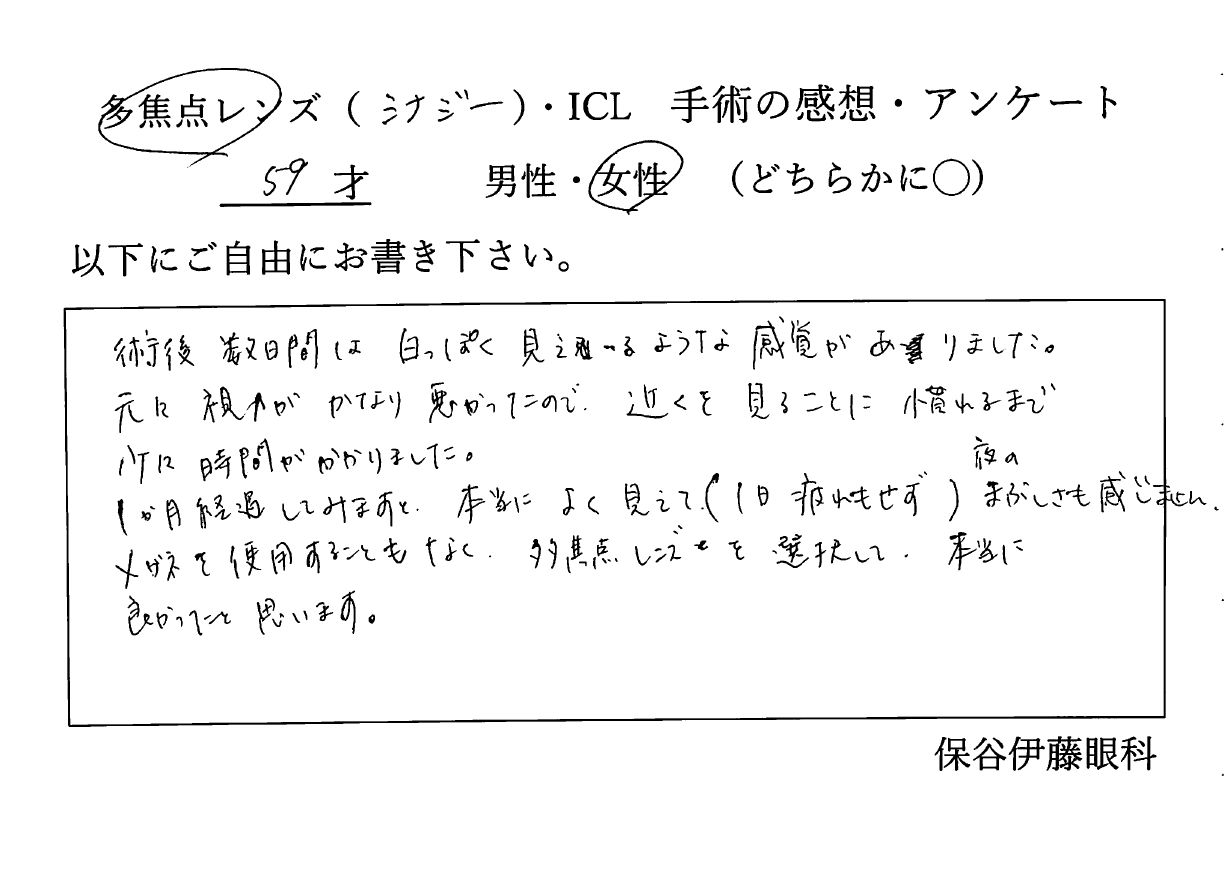 多焦点レンズ(シナジー)・ICL 手術の感想・アンケート
59才 男性・女性 (どちらかに○)
以下にご自由にお書き下さい。
術後数日間は白っぽく見えるような感覚がありました。
元々視力がかなり悪かったので、近くを見ることに慣れるまで
少々時間がかかりました。
1か月経過してみますと、本当によく見えて、(1日疲れもせず)夜のまぶしさも感じません。
メガネを使用することもなく、多焦点レンズを選択して、本当に
良かったと思います。
保谷伊藤眼科